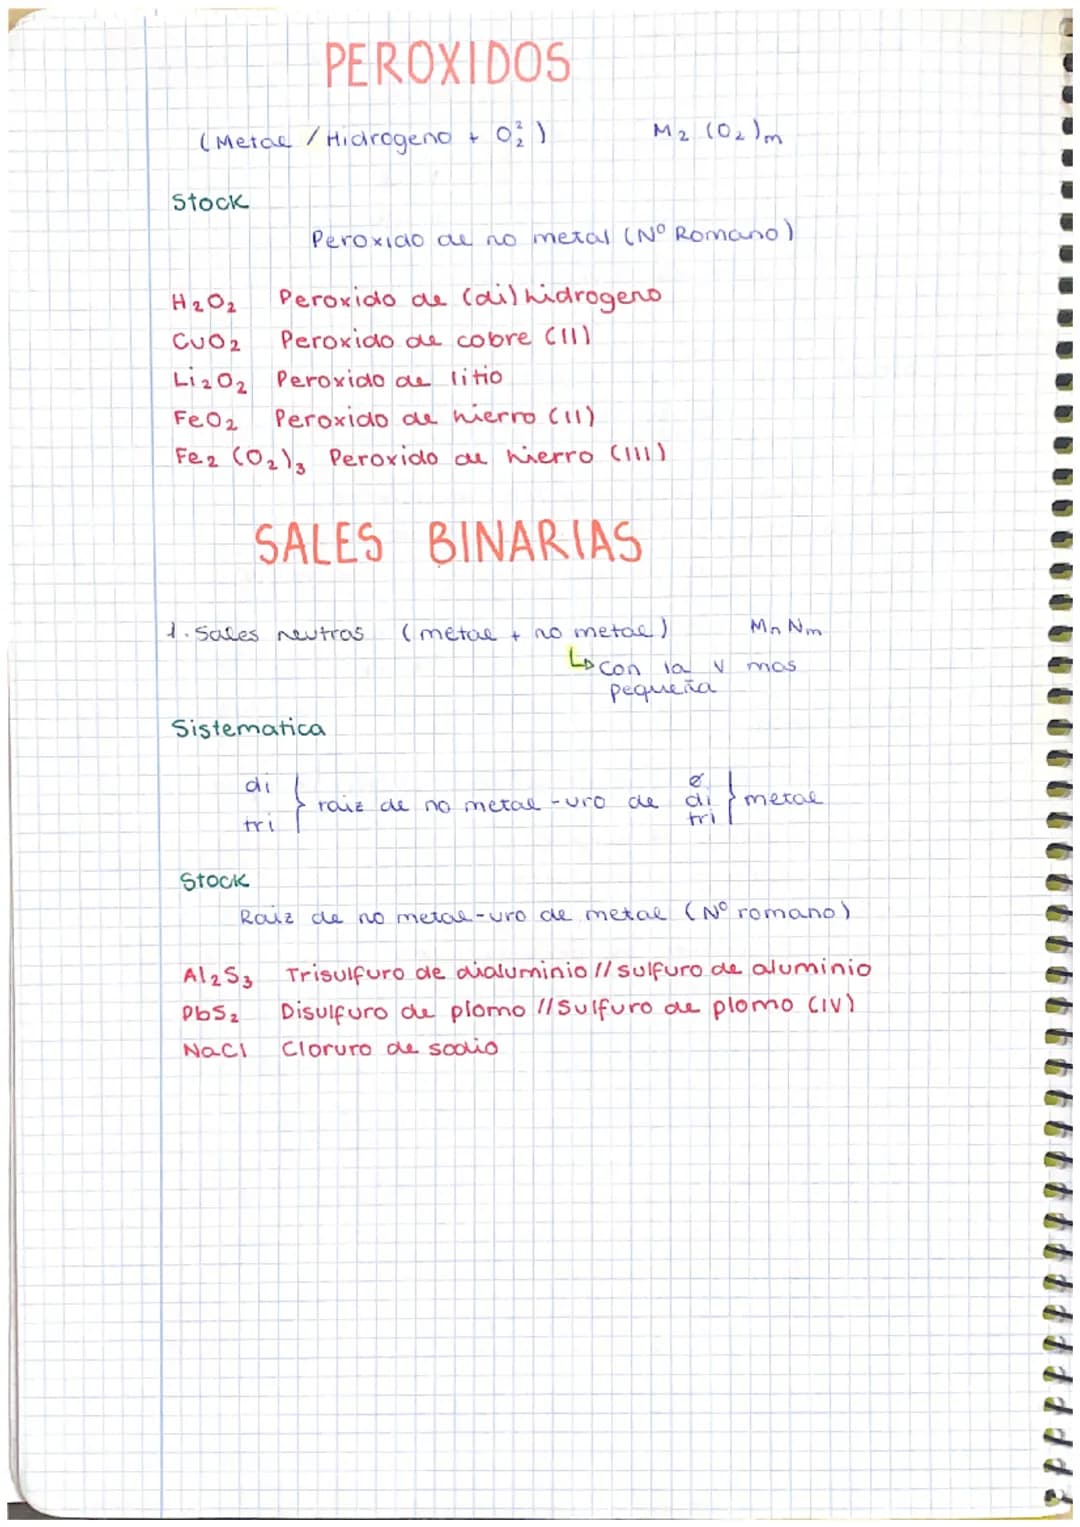 PEROXIDOS
(Metal / Hidrogeno + O₂²) M₂ (O₂)m
Stock
Peroxido de no metal (Nº Romano)
H₂O₂ Peroxido de (di)hidrogeno
CuO₂ Peroxido de cobre (II)
Li₂O₂ Peroxido de litio
FeO₂ Peroxido de hierro (II)
Fe₂ (O₂)₃ Peroxido de hierro (III)
SALES BINARIAS
1. Sales neutras (metal + no metal) Mn Nm
↳ Con la v mas
pequeña
Sistematica
di
tri } raiz de no metal -uro de ø di tri } metal
Stock
Raiz de no metal-uro de metal (Nº romano)
Al₂S₃ Trisulfuro de dialuminio // sulfuro de aluminio
PbS₂ Disulfuro de plomo // Sulfuro de plomo (IV)
NaCl Cloruro de sodio